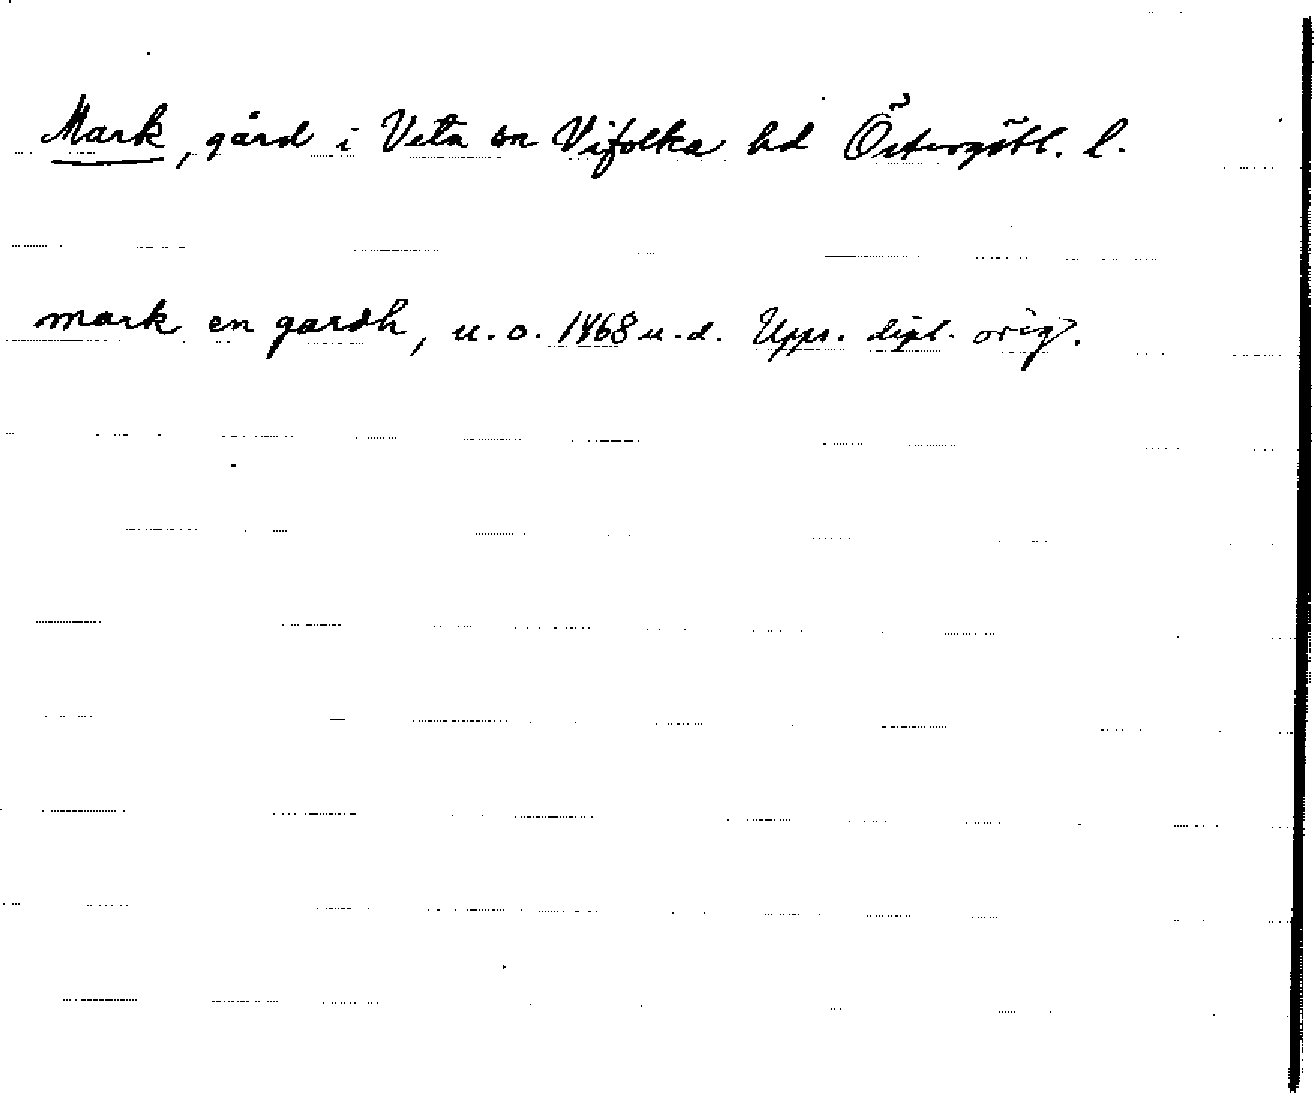 Mark, gård i Veta sn Vifolka hd Östergötl. l.
mark en gardh, u.o. 1468 u.d. Upps. dipl. orig.